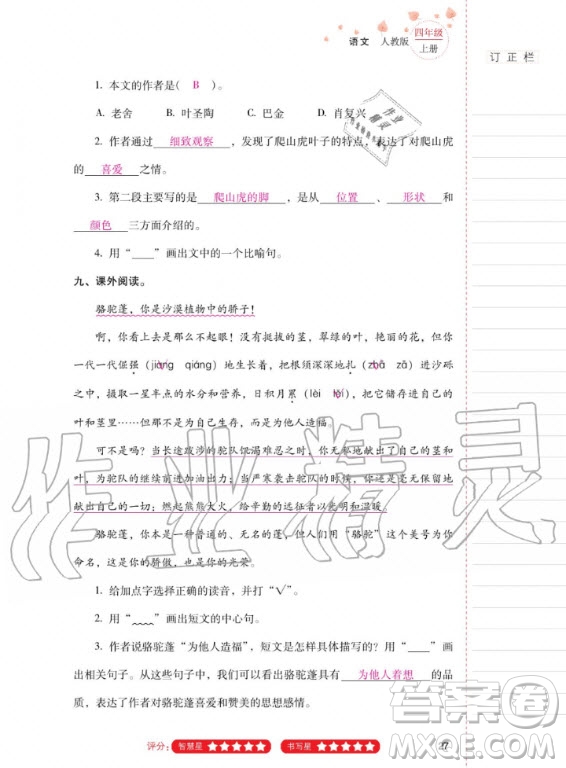 语文 人教版 四年级
上册
订正栏
1. 本文的作者是( B )。
A. 老舍 B. 叶圣陶 C. 巴金 D. 肖复兴
2. 作者通过 细致观察 ，发现了爬山虎叶子的特点，表达了对爬山虎
的 喜爱 之情。
3. 第二段主要写的是 爬山虎的脚 ，是从 位置 、 形状 和
颜色 三方面介绍的。
4. 用“____”画出文中的一个比喻句。
九、课外阅读。
骆驼蓬，你是沙漠植物中的骄子！
啊，你，看上去是那么不起眼！没有挺拔的茎，翠绿的叶，艳丽的花，但你
一代一代倔强（jiàng qiáng）地生长着，把根须深深地扎（zhā zā）进沙砾
之中，摄取一星半点的水分和营养，日积月累（lèi lěi），把它储存进自己的
叶和茎里……你不是为自己生存，而是为他人造福。
可不是吗？当长途跋涉的驼队饥渴难忍之时，你无私地献出了自己的茎和
叶，为驼队的继续前进加油出力；当严寒袭击驼队的时候，你又毫无保留地
献出自己的一切；燃起熊熊大火，给辛勤的远征者以光明和温暖。
骆驼蓬，你是一种普通的、无名的蓬，但人们用“骆驼”这个美号为你
命名，这是你的骄傲，也是你的光荣。
1. 给加点字选择正确的读音，并打“√”。
2. 用“﹏﹏”画出短文的中心句。
3. 作者说骆驼蓬“为他人造福”，短文是怎样具体描写的？用“____”画
出相关句子。从这些句子中，我们可以看出骆驼蓬具有 为他人着想 的品
质，表达了作者对骆驼蓬喜爱和赞美的思想感情。
评分： 智慧星 ★★★★★ 书写星 ★★★★★ 27
作业精灵
答案圈